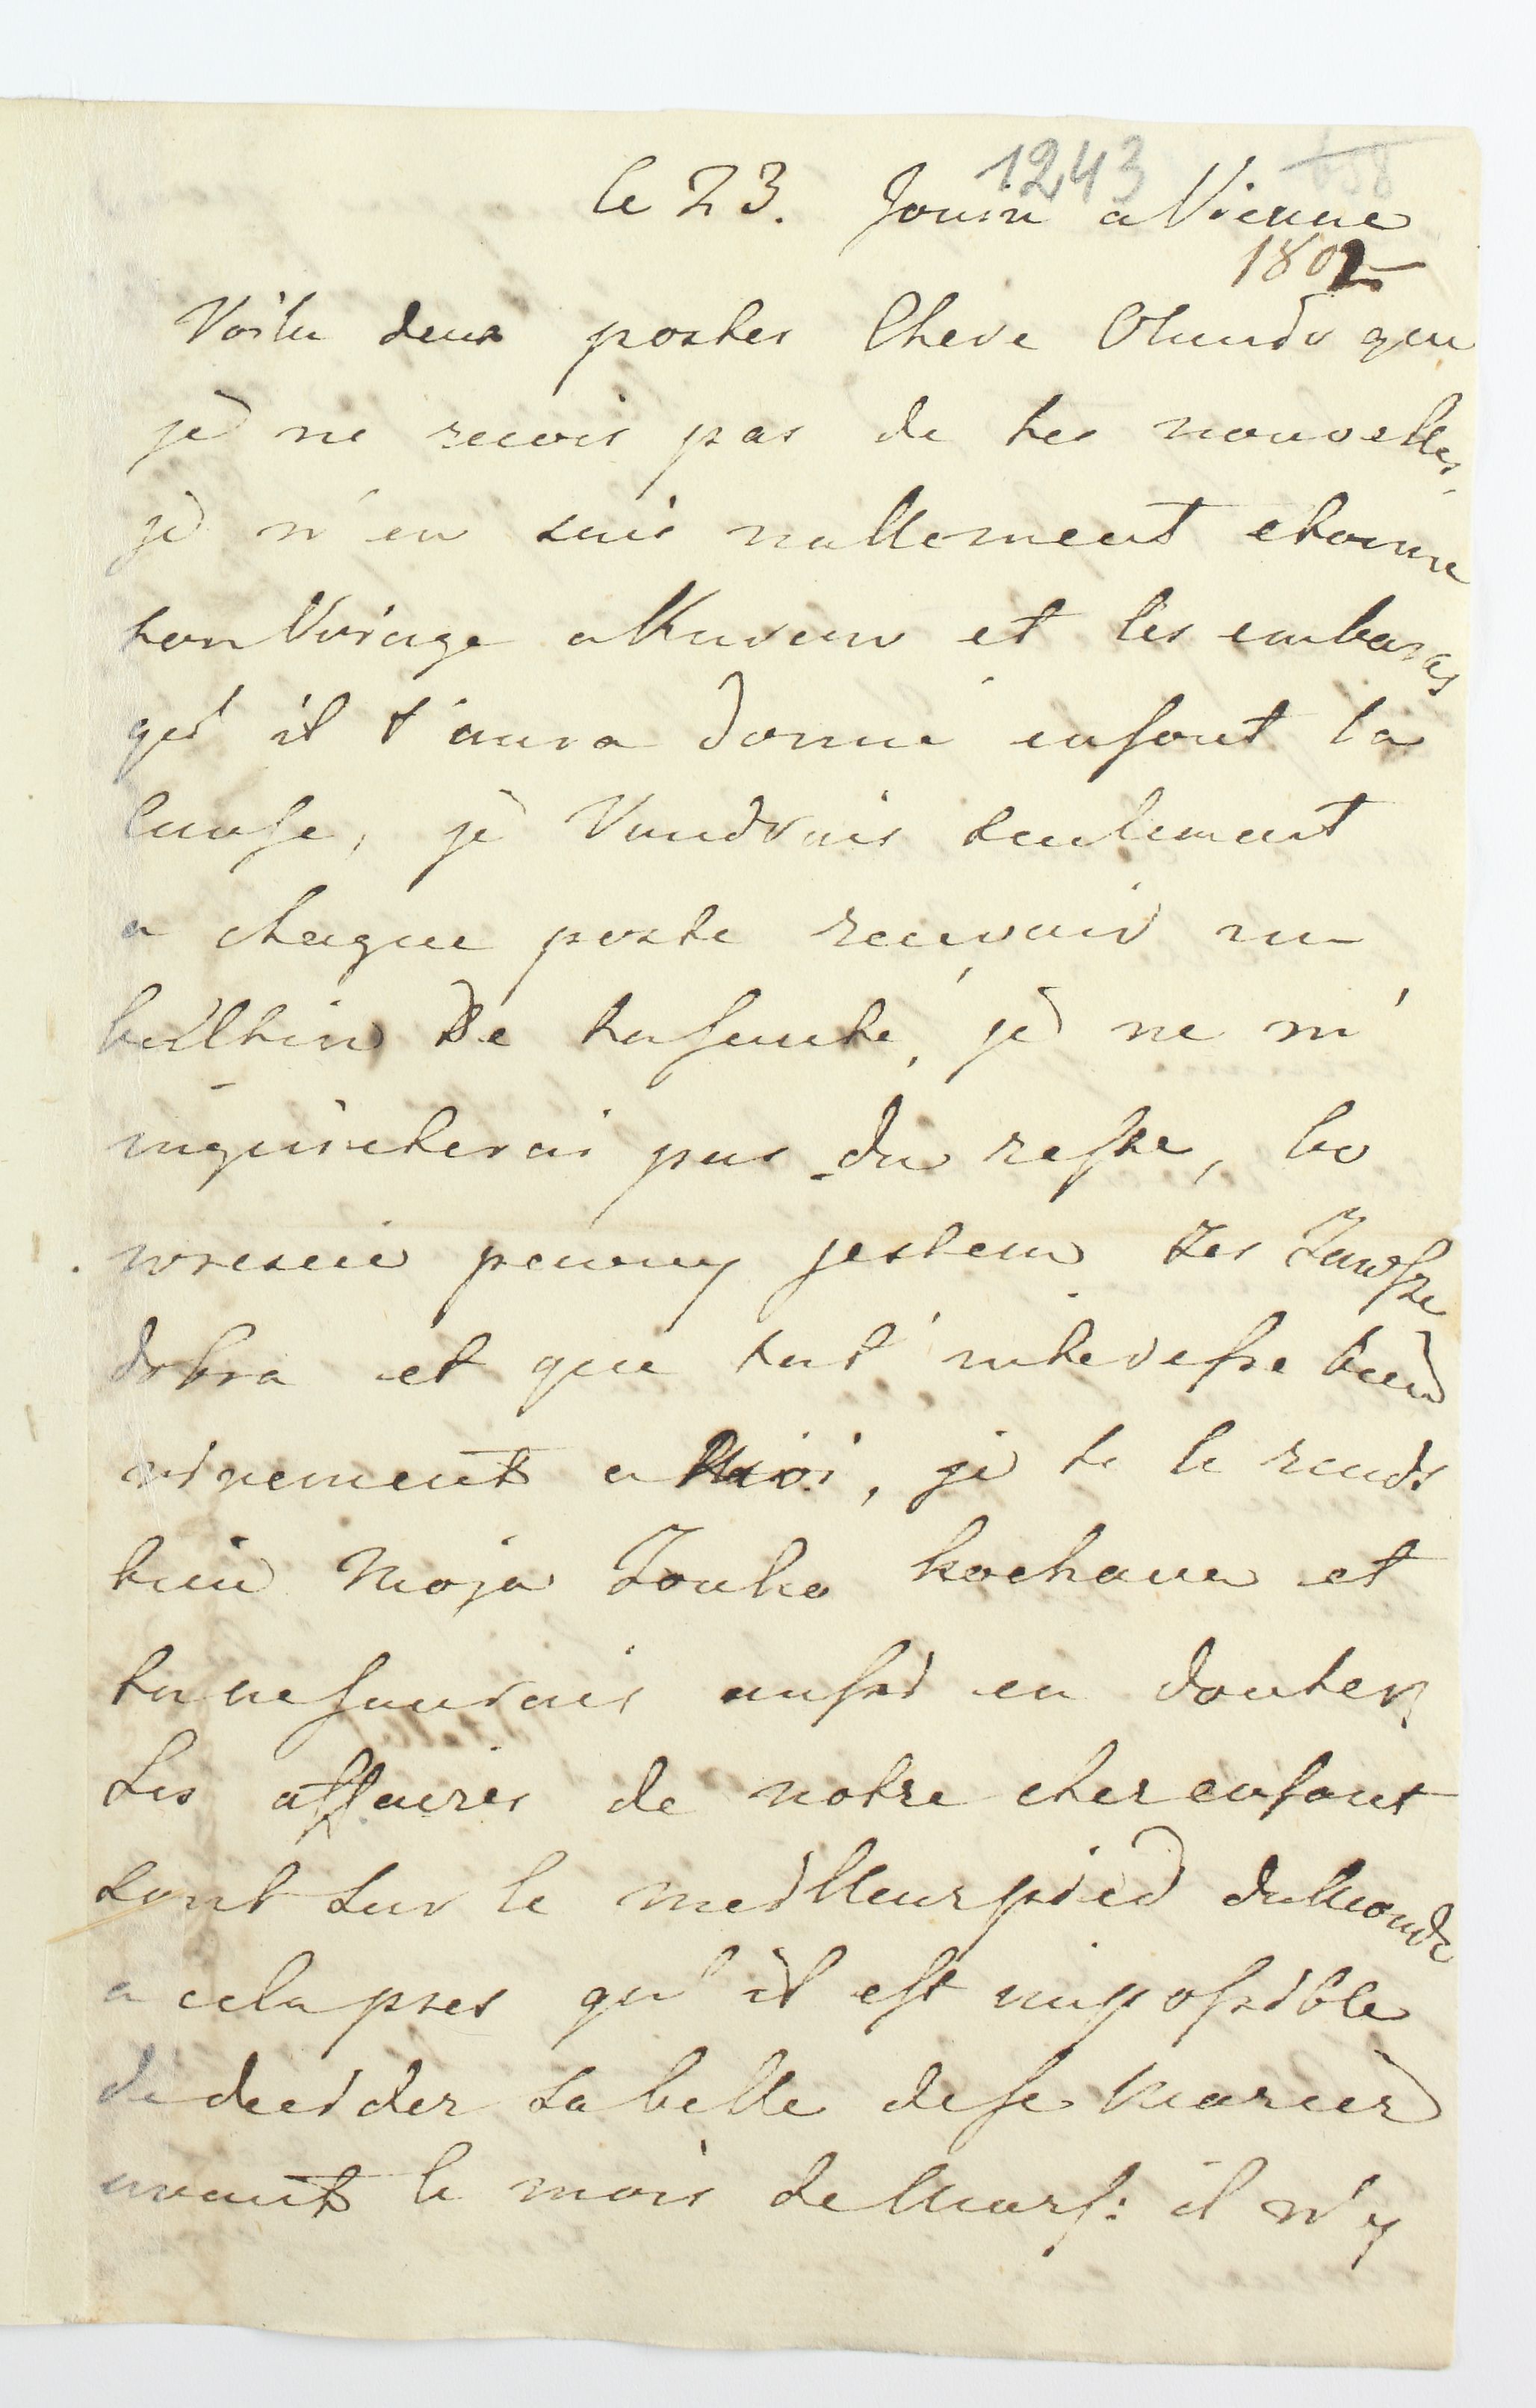 1243
le 23. Jouin a Vienne
1802
Voila deux postes Chere Olunds que
je ne recois pas de tes nouvelles,
je n'en suis nullement etonne
ton Voiage a Kravau et les embaras
qu'il t'aura donné en font la
Cause, je Voudrais seulement
a chaque poste recevoir un
bulltin De ta sante, je ne m'
inquieterai pas du reste, bo
wrescie pewny jestem zes Zawsze
dobra et que tu t'interesse bien
vivement a Moi, je te le rends
bien Moja Zonko kochana et
tu ne saurais aussi en douter,
Les affaires de notre cher enfant
sont sur le meilleur pied du Monde
a cela pres qu'il est impossible
de decider la belle de se Marier
avant le mois de Mars: il n'y